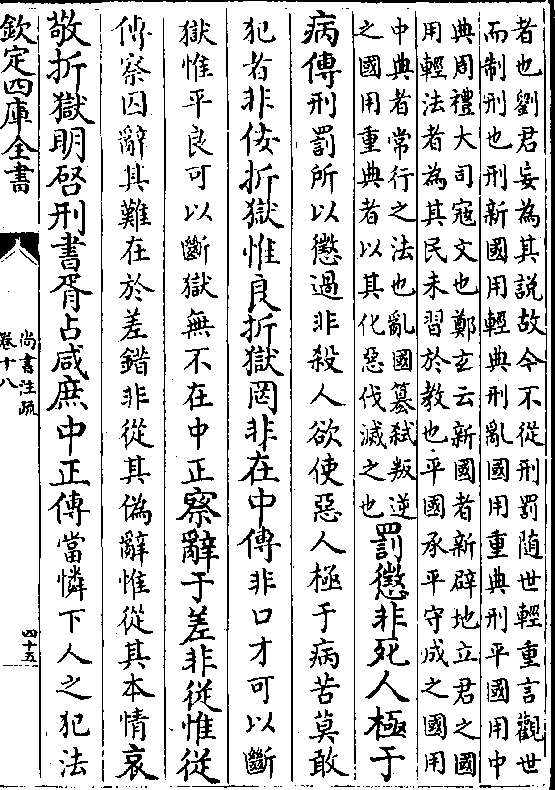 者也劉君妄為其說故今不從刑罰随世輕重言觀世
而制刑也刑新國用輕典刑亂國用重典刑平國用中
典周禮大司寇文也鄭玄云新國者新辟地立君之國
用輕法者為其民未習於教也平國承平守成之國用
中典者常行之法也亂國篡弑叛逆
之國用重典者以其化惡伐滅之也
罰懲非死人極于
病傳刑罰所以懲過非殺人欲使惡人極于病苦莫敢
犯者非佞折獄惟良折獄罔非在中傳非口才可以斷
獄惟平良可以斷獄無不在中正察辭于差非從惟從
傳察囚辭其難在於差錯非從其偽辭惟從其本情哀
敬折獄明啓刑書胥占咸庶中正傳當憐下人之犯法
欽定四庫全書
尚書注疏
卷十八
四十五